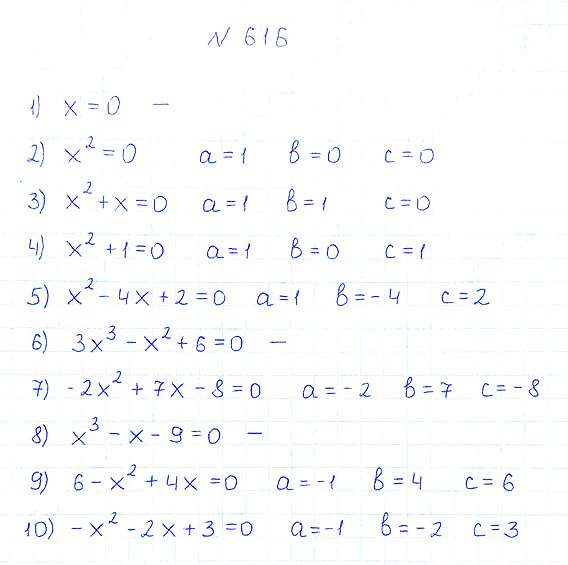 N 616
1) x = 0 —
2) x² = 0 a = 1 в = 0 c = 0
3) x² + x = 0 a = 1 в = 1 c = 0
4) x² + 1 = 0 a = 1 в = 0 c = 1
5) x² - 4x + 2 = 0 a = 1 в = - 4 c = 2
6) 3x³ - x² + 6 = 0 —
7) - 2x² + 7x - 8 = 0 a = - 2 в = 7 c = - 8
8) x³ - x - 9 = 0 —
9) 6 - x² + 4x = 0 a = -1 в = 4 c = 6
10) - x² - 2x + 3 = 0 a = -1 в = - 2 c = 3